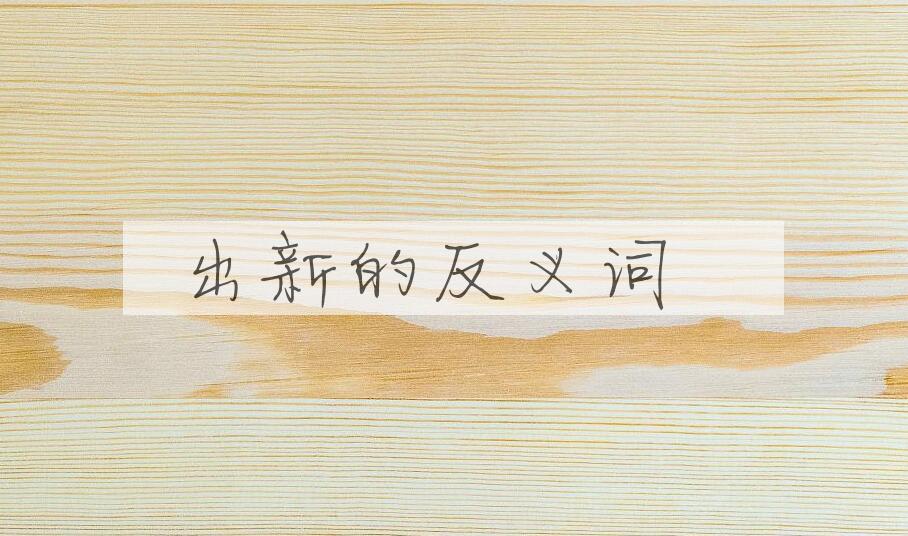 出新的反义词